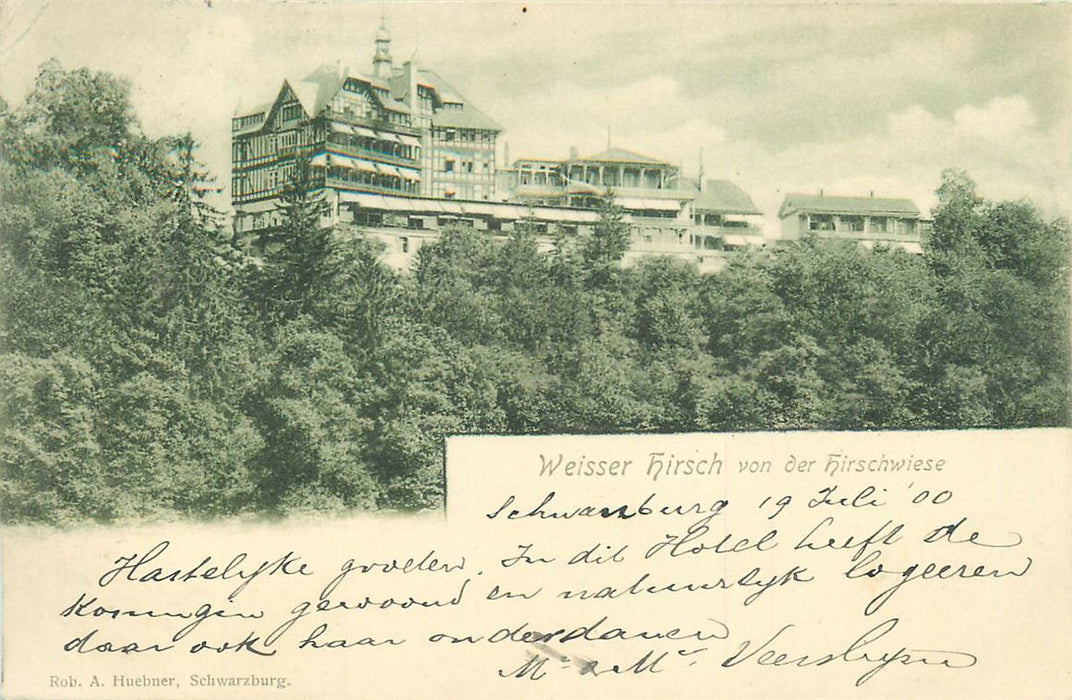 Weisser Hirsch von der Hirschwiese
Schwarzburg 19 Juli '00
Hartelyke groeten. In dit Hotel heeft de
Koningin gewoond en natuurlyk logeeren
daar ook haar onderdanen
Mr & Mr
Rob. A. Huebner, Schwarzburg.